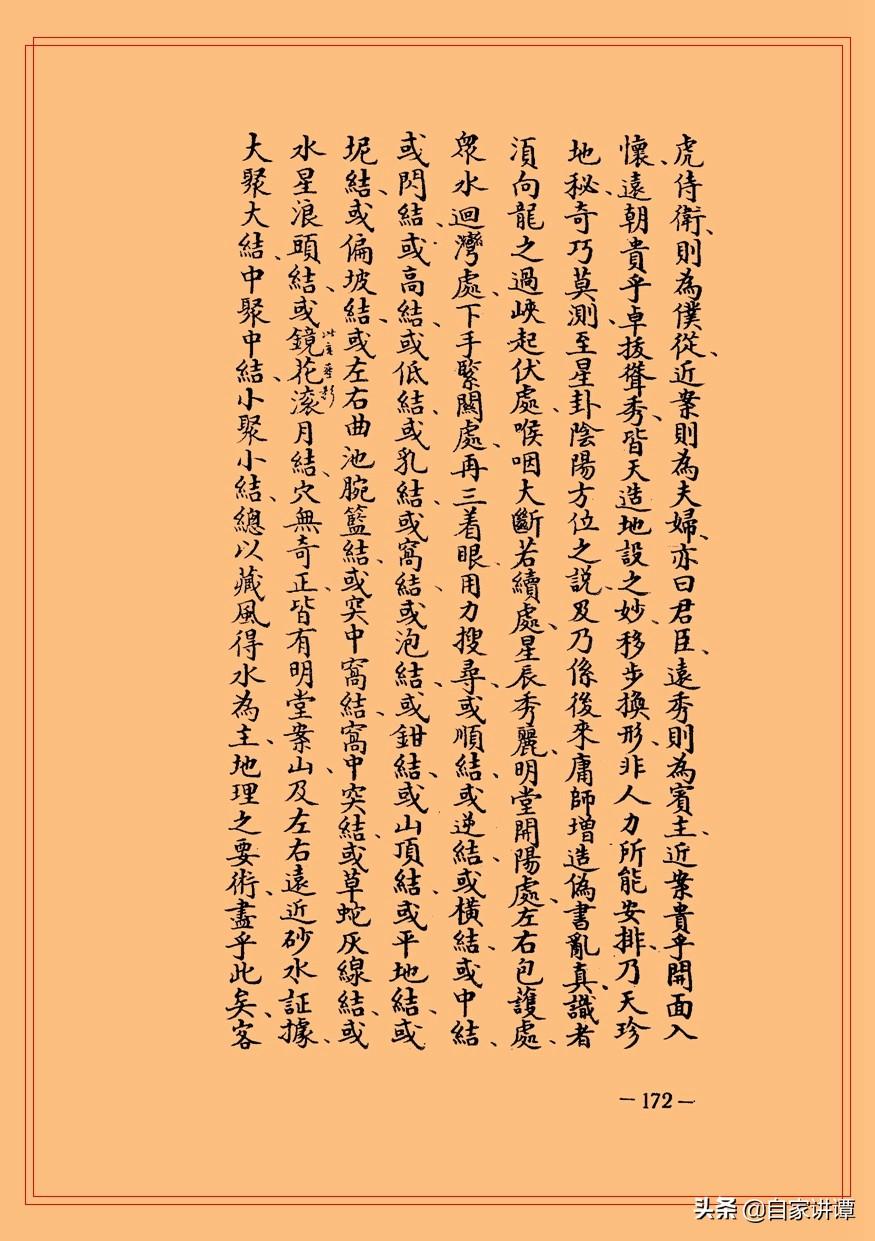 虎侍衛、則為僕從、近案則為夫婦、亦曰君臣、遠秀則為賓主、近案貴乎開面入
懷、遠朝貴乎卓拔聳秀、皆天造地設之妙、移步換形、非人力所能安排、乃天珍
地秘、奇巧莫測、至星卦陰陽方位之說、及乃係後來庸師增造偽書亂真、識者
須向龍之過峽起伏處、喉咽大斷若續處、星辰秀麗、明堂開陽處、左右包護處、
眾水迴灣處、下手緊關處、再三着眼、用力搜尋、或順結、或逆結、或橫結、或中結、
或閃結、或高結、或低結、或乳結、或窩結、或泡結、或鉗結、或山頂結、或平地結、或
坭結、或偏坡結、或左右曲池腕籃結、或突中窩結、窩中突結、或草蛇灰線結、或
水星浪頭結、或鏡花滚月結、穴無奇正、皆有明堂案山、及左右遠近砂水証據、
大聚大結、中聚中結、小聚小結、總以藏風得水為主、地理之要術、盡乎此矣、客
－172－
头条 @自家讲谭